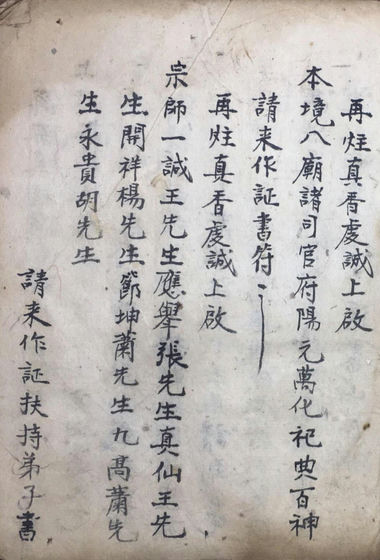 再炷真香虔誠上啟
本境八廟諸司官府陽元萬化祀典百神
請来作証書符
再炷真香虔誠上啟
宗師一誠王先生應舉張先生真仙王先
生開祥楊先生節坤蕭先生九高蕭先
生永貴胡先生
請来作証扶持弟子書